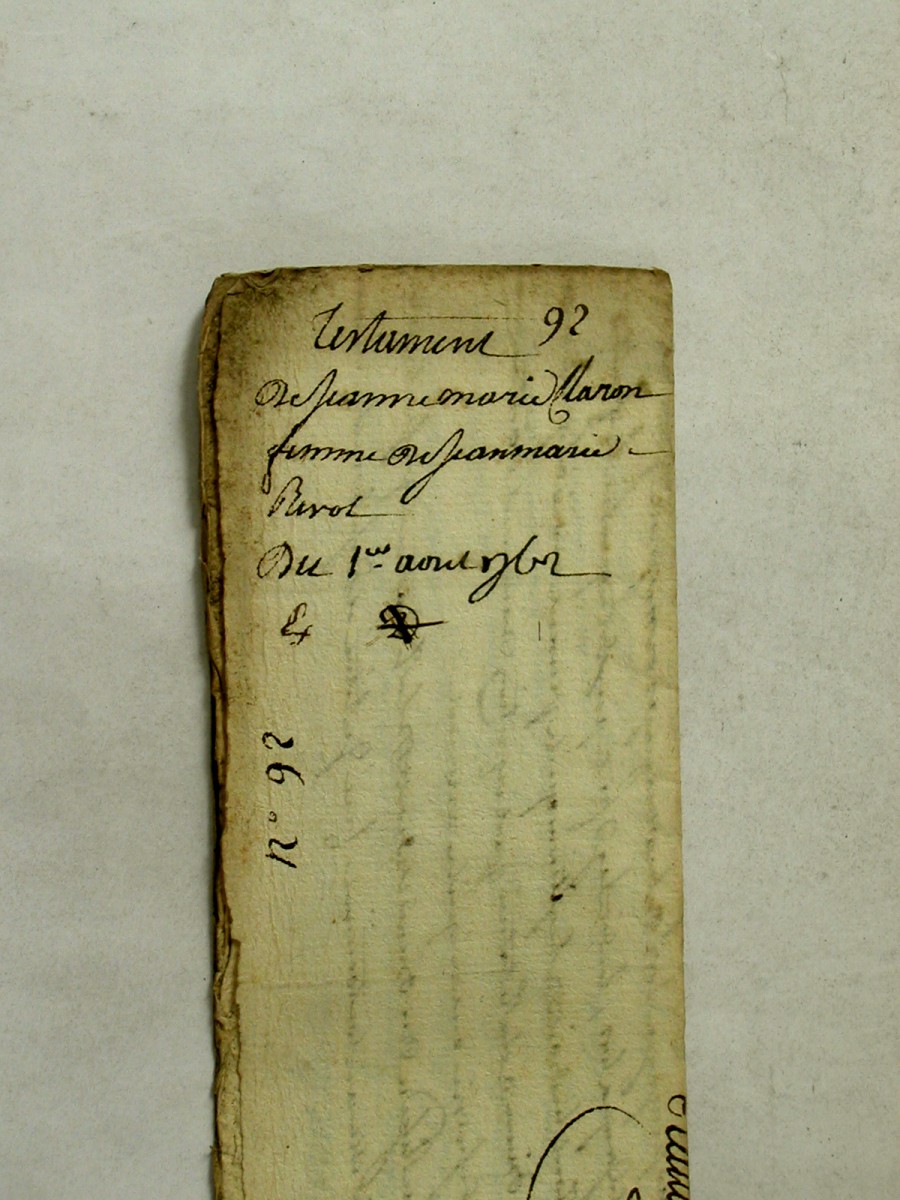 Testament 92
De Jeanne marie Claron
femme De Jean marie
Revol
Du 1er aout 1762
n° 92